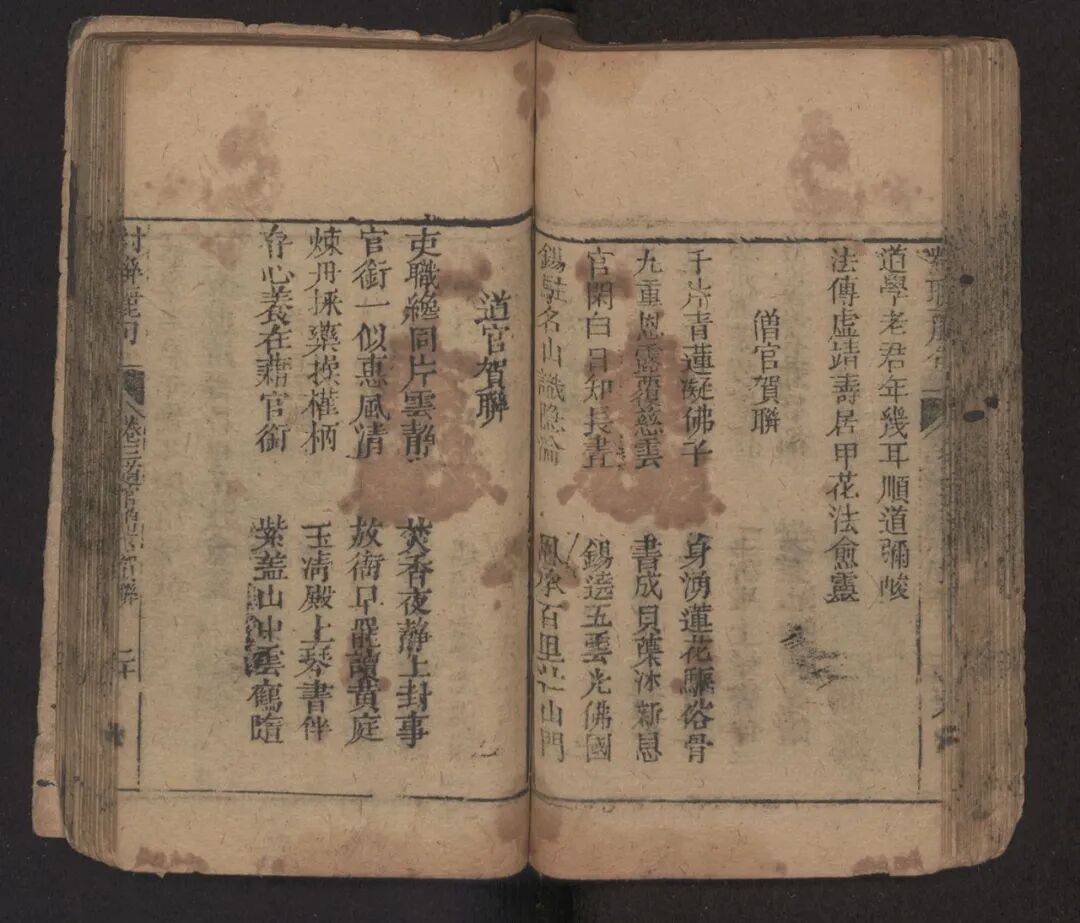 道學老君年幾耳順道彌峻
法傳虛靖壽居甲花法愈靈
僧官賀聯
千片青蓮凝佛子
身湧蓮花驅俗骨
九重恩露覆慈雲
書成貝葉沐新恩
官閑白日知長晝
錫遶五雲光佛國
錫駐名山識隐淪
百里 山門
道官賀聯
吏職纔同片雲靜
焚香夜靜上封事
官銜一似惠風清
放衙早罷讀黃庭
煉丹採藥操權柄
玉清殿上琴書伴
存心養在藉官銜
紫蓋山中雲鶴隨
卷三道官 賀聯
二十